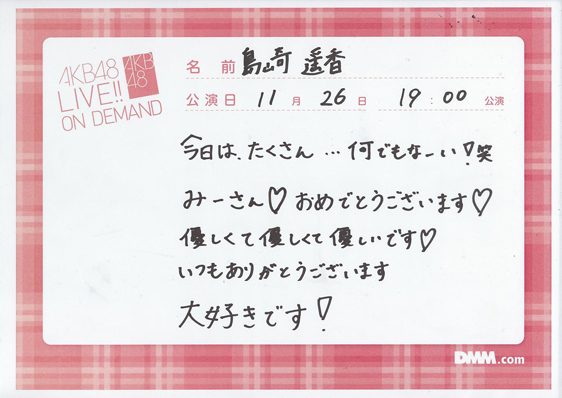 AKB48
LIVE!!
ON DEMAND
AKB
48
名前 島崎 遥香
公演日 11月 26日 19:00 公演
今日は、たくさん…何でもなーい!笑
みーさん♡おめでとうございます♡
優しくて優しくて優しいです♡
いつもありがとうございます
大好きです!
DMM.com